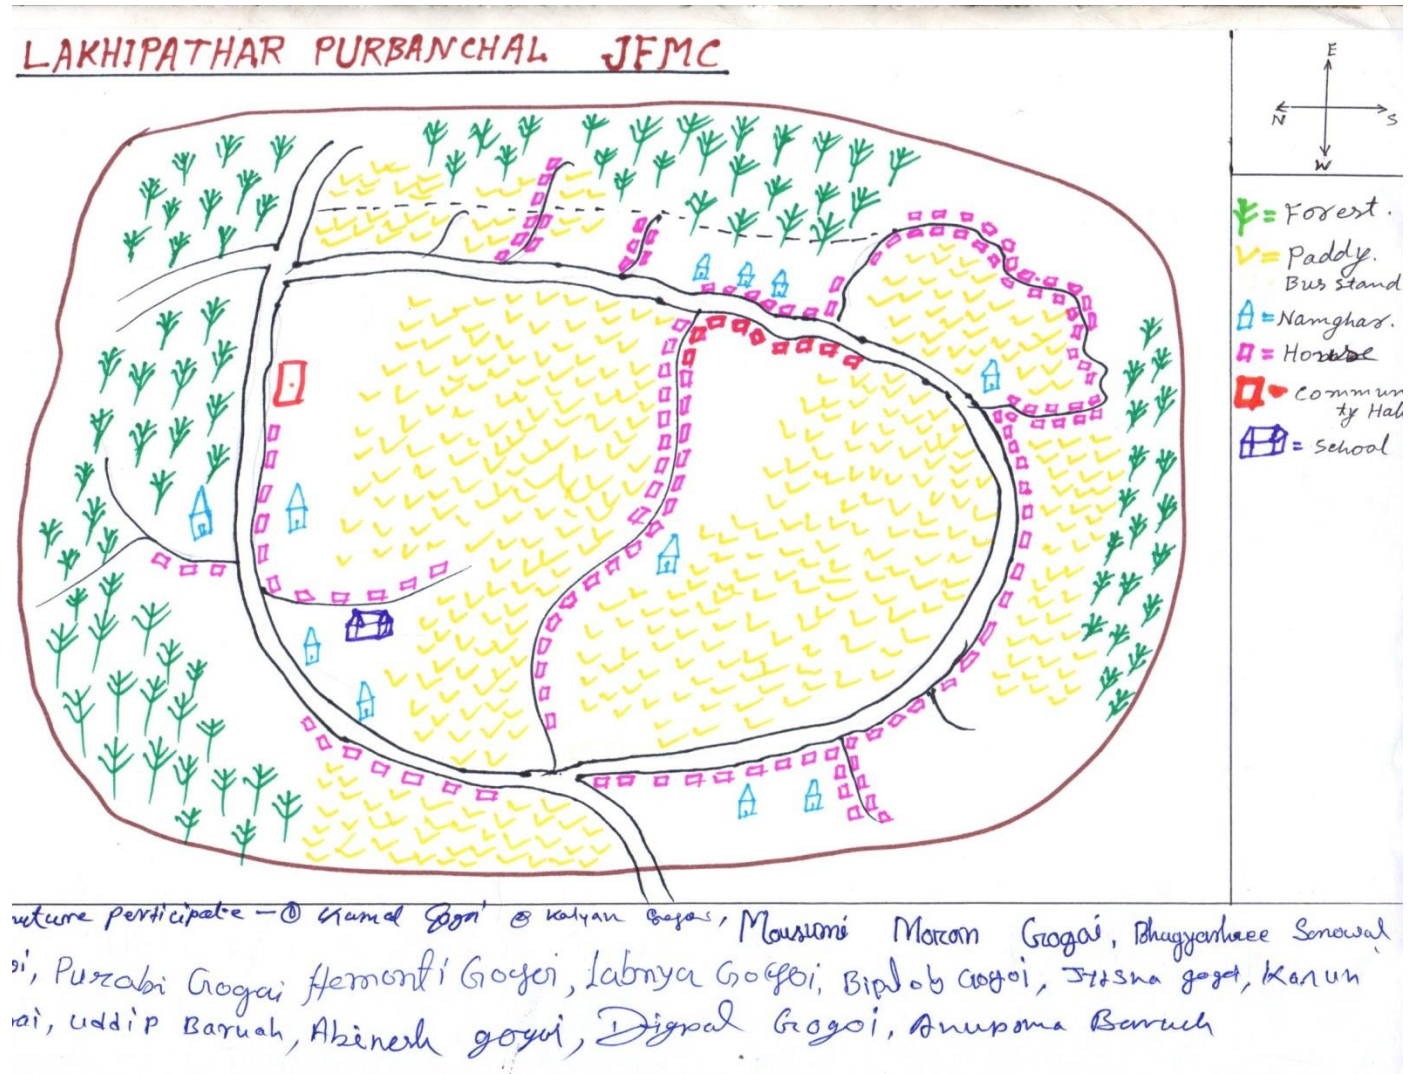 LAKHIPATHAR PURBANCHAL JFMC
E
N S
W
= Forest.
= Paddy.
Bus stand
= Namghar.
= House
= Commun
ty Hall
= School
perticipate - ① Kamal Gogoi ② Kalyan Gogoi, Mousumi Moran Gogoi, Bhagyashree Sonowal
oi, Purabi Gogoi Hemonti Gogoi, Labnya Gogoi, Biplob Gogoi, Jyosna gogoi, Karun
uddip Baruah, Abinesh gogoi, Digpal Gogoi, Anupoma Baruah